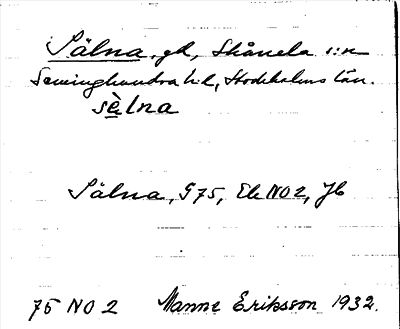 Sälna, gd, Skånela s:n
Seminghundra hd, Stockholms län.
sèlna
Sälna, G75, Ek NO2, Jb
75 NO 2 Manne Eriksson 1932.